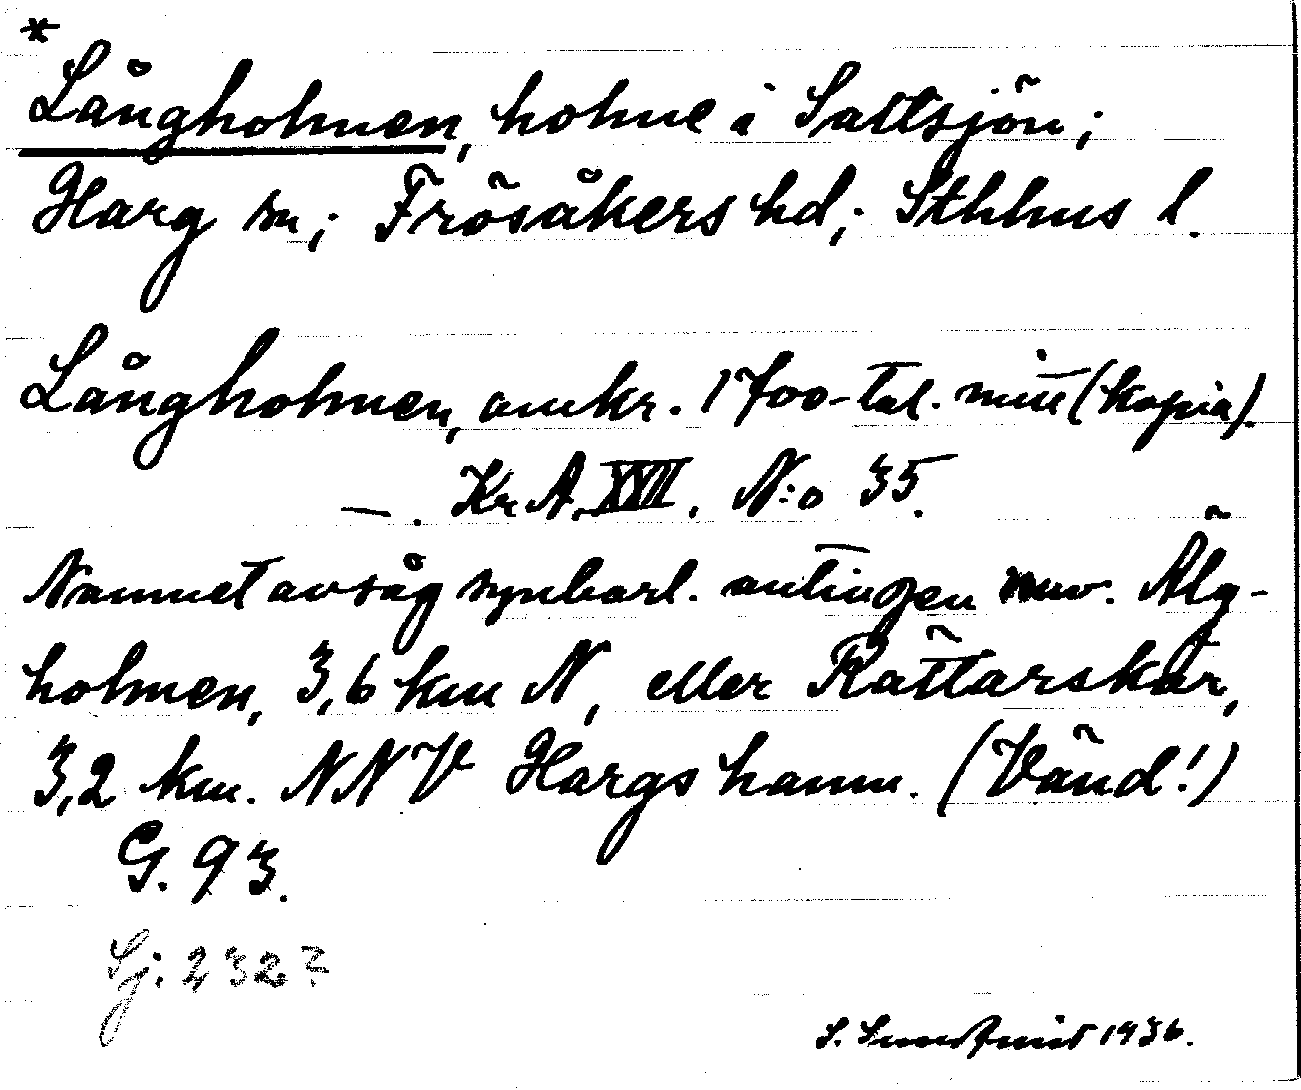 *
Långholmen, holme i Saltsjön;
Harg sn; Frösåkers hd; Sthlms l.
Långholmen, omkr. 1700-tal. mitt (kopia).
—. Kr. A. XVII. N:o 35.
Namnet avsåg synbarl. antingen nuv. Älg-
holmen, 3,6 km N, eller Rättarskär,
3,2 km. NNV Hargshamn. (Vänd!)
G. 93.
Sj: 2327
S. Sundqvist 1936.